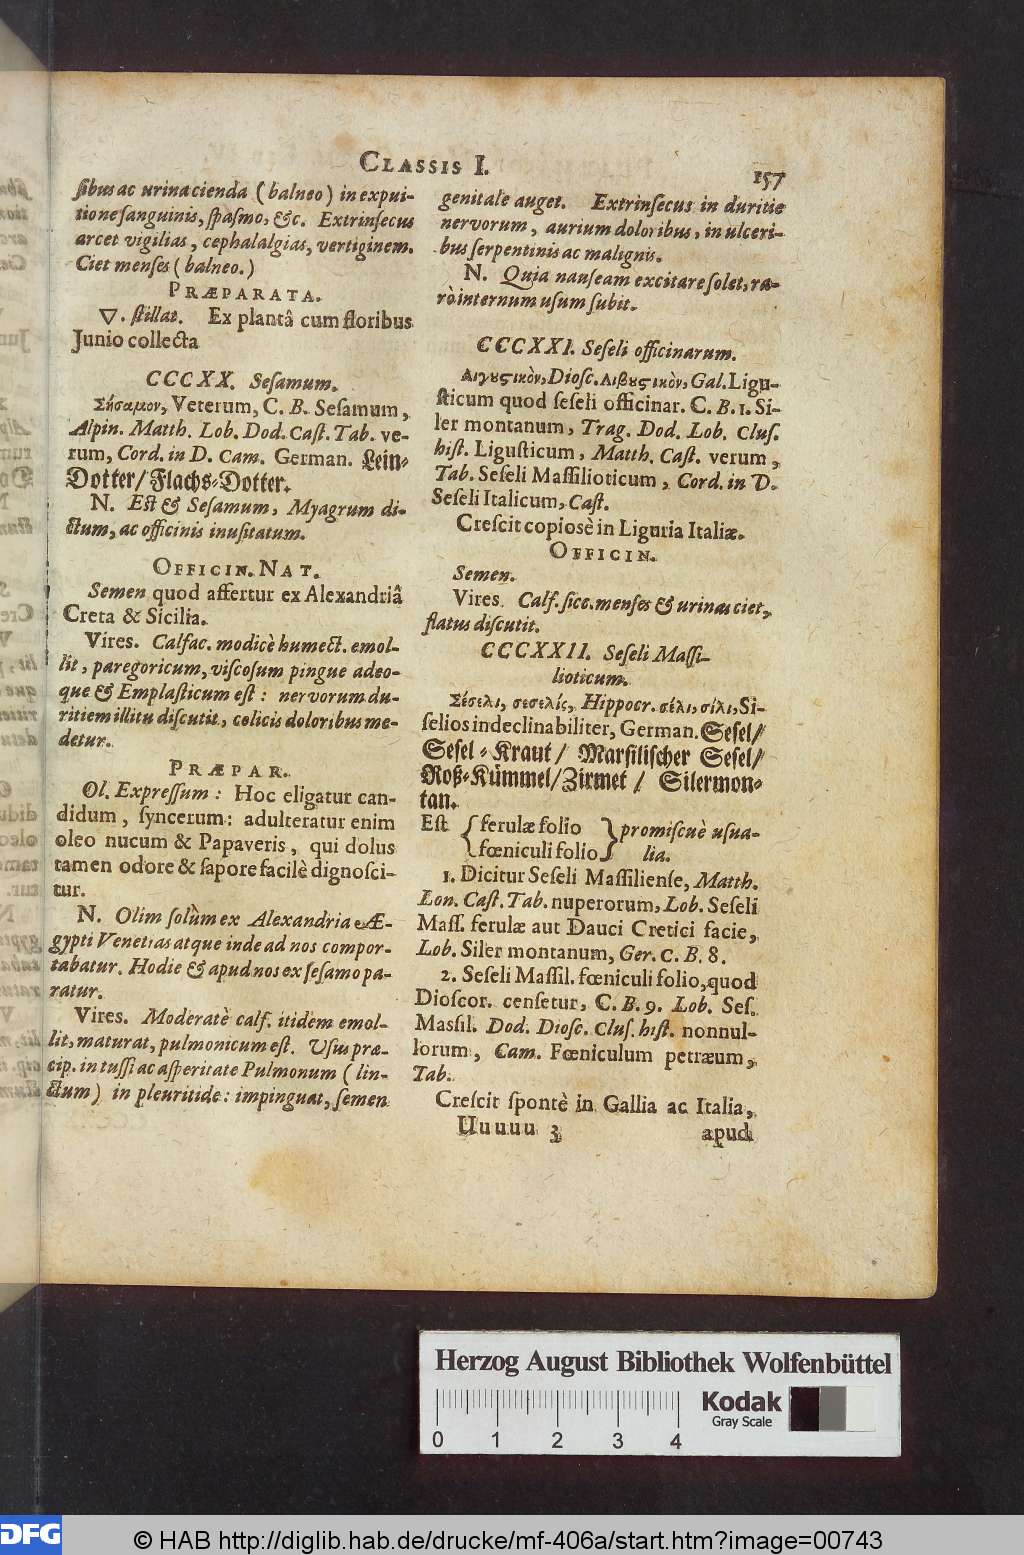 CLASSIS I.
157
ſibus ac urina cienda (balneo) in expui-
tione ſanguinis, ſpaſmo, &c. Extrinſecus
arcet vigilias, cephalalgias, vertiginem.
Ciet menſes (balneo.)
PRÆPARATA.
▽. ſtillat. Ex plantâ cum floribus
Junio collecta
CCCXX. Seſamum.
Σήσαμον, Veterum, C. B. Seſamum,
Alpin. Matth. Lob. Dod. Caſt. Tab. ve-
rum, Cord. in D. Cam. German. Lein-
Dotter/ Flachs-Dotter.
N. Eſt & Seſamum, Myagrum di-
ctum, ac officinis inuſitatum.
OFFICIN. NAT.
Semen quod affertur ex Alexandriâ
Creta & Sicilia.
Vires. Calfac. modicè humect. emol-
lit, paregoricum, viſcoſum pingue adeo-
que & Emplaſticum eſt: nervorum du-
ritiem illitu diſcutit, colicis doloribus me-
detur.
PRÆPAR.
Ol. Expreſſum: Hoc eligatur can-
didum, ſyncerum: adulteratur enim
oleo nucum & Papaveris, qui dolus
tamen odore & ſapore facilè dignoſci-
tur.
N. Olim ſolùm ex Alexandria Æ-
gypti Venetias atque inde ad nos compor-
tabatur. Hodie & apud nos ex ſeſamo pa-
ratur.
Vires. Moderatè calf. itidem emol-
lit, maturat, pulmonicum eſt. Uſus præ-
cip. in tuſſi ac aſperitate Pulmonum (lin-
ctum) in pleuritide: impinguat, ſemen
genitale auget. Extrinſecus in duritie
nervorum, aurium doloribus, in ulceri-
bus ſerpentinis ac malignis.
N. Quia nauſeam excitare ſolet, ra-
rò internum uſum ſubit.
CCCXXI. Seſeli officinarum.
Λιγυςικὸν, Dioſc. Λιβυςικὸν, Gal. Ligu-
ſticum quod ſeſeli officinar. C. B. 1. Si-
ler montanum, Trag. Dod. Lob. Cluſ.
hiſt. Liguſticum, Matth. Caſt. verum,
Tab. Seſeli Maſſilioticum, Cord. in D.
Seſeli Italicum, Caſt.
Creſcit copiosè in Liguria Italiæ.
OFFICIN.
Semen.
Vires. Calf. ſicc. menſes & urinas ciet,
flatus diſcutit.
CCCXXII. Seſeli Maſſi-
lioticum.
Σέσελι, σεσελίς, Hippocr. σέλι, σίλι, Si-
ſelios indeclinabiliter, German. Seſel/
Seſel-Kraut/ Marſiliſcher Seſel/
Roß-Kümmel/ Zirmet/ Silermon-
tan.
Eſt { ferulæ folio } promiſcuè uſua-
fœniculi folio lia.
1. Dicitur Seſeli Maſſilienſe, Matth.
Lon. Caſt. Tab. nuperorum, Lob. Seſeli
Maſſ. ferulæ aut Dauci Cretici facie,
Lob. Siler montanum, Ger. C. B. 8.
2. Seſeli Maſſil. fœniculi folio, quod
Dioſcor. cenſetur, C. B. 9. Lob. Seſ.
Maſſil. Dod. Dioſc. Cluſ. hiſt. nonnul-
lorum, Cam. Fœniculum petræum,
Tab.
Creſcit ſpontè in Gallia ac Italia,
Uuuuu 3
apud
Herzog August Bibliothek Wolfenbüttel
Kodak
Gray Scale
0 1 2 3 4
DFG
© HAB http://diglib.hab.de/drucke/mf-406a/start.htm?image=00743